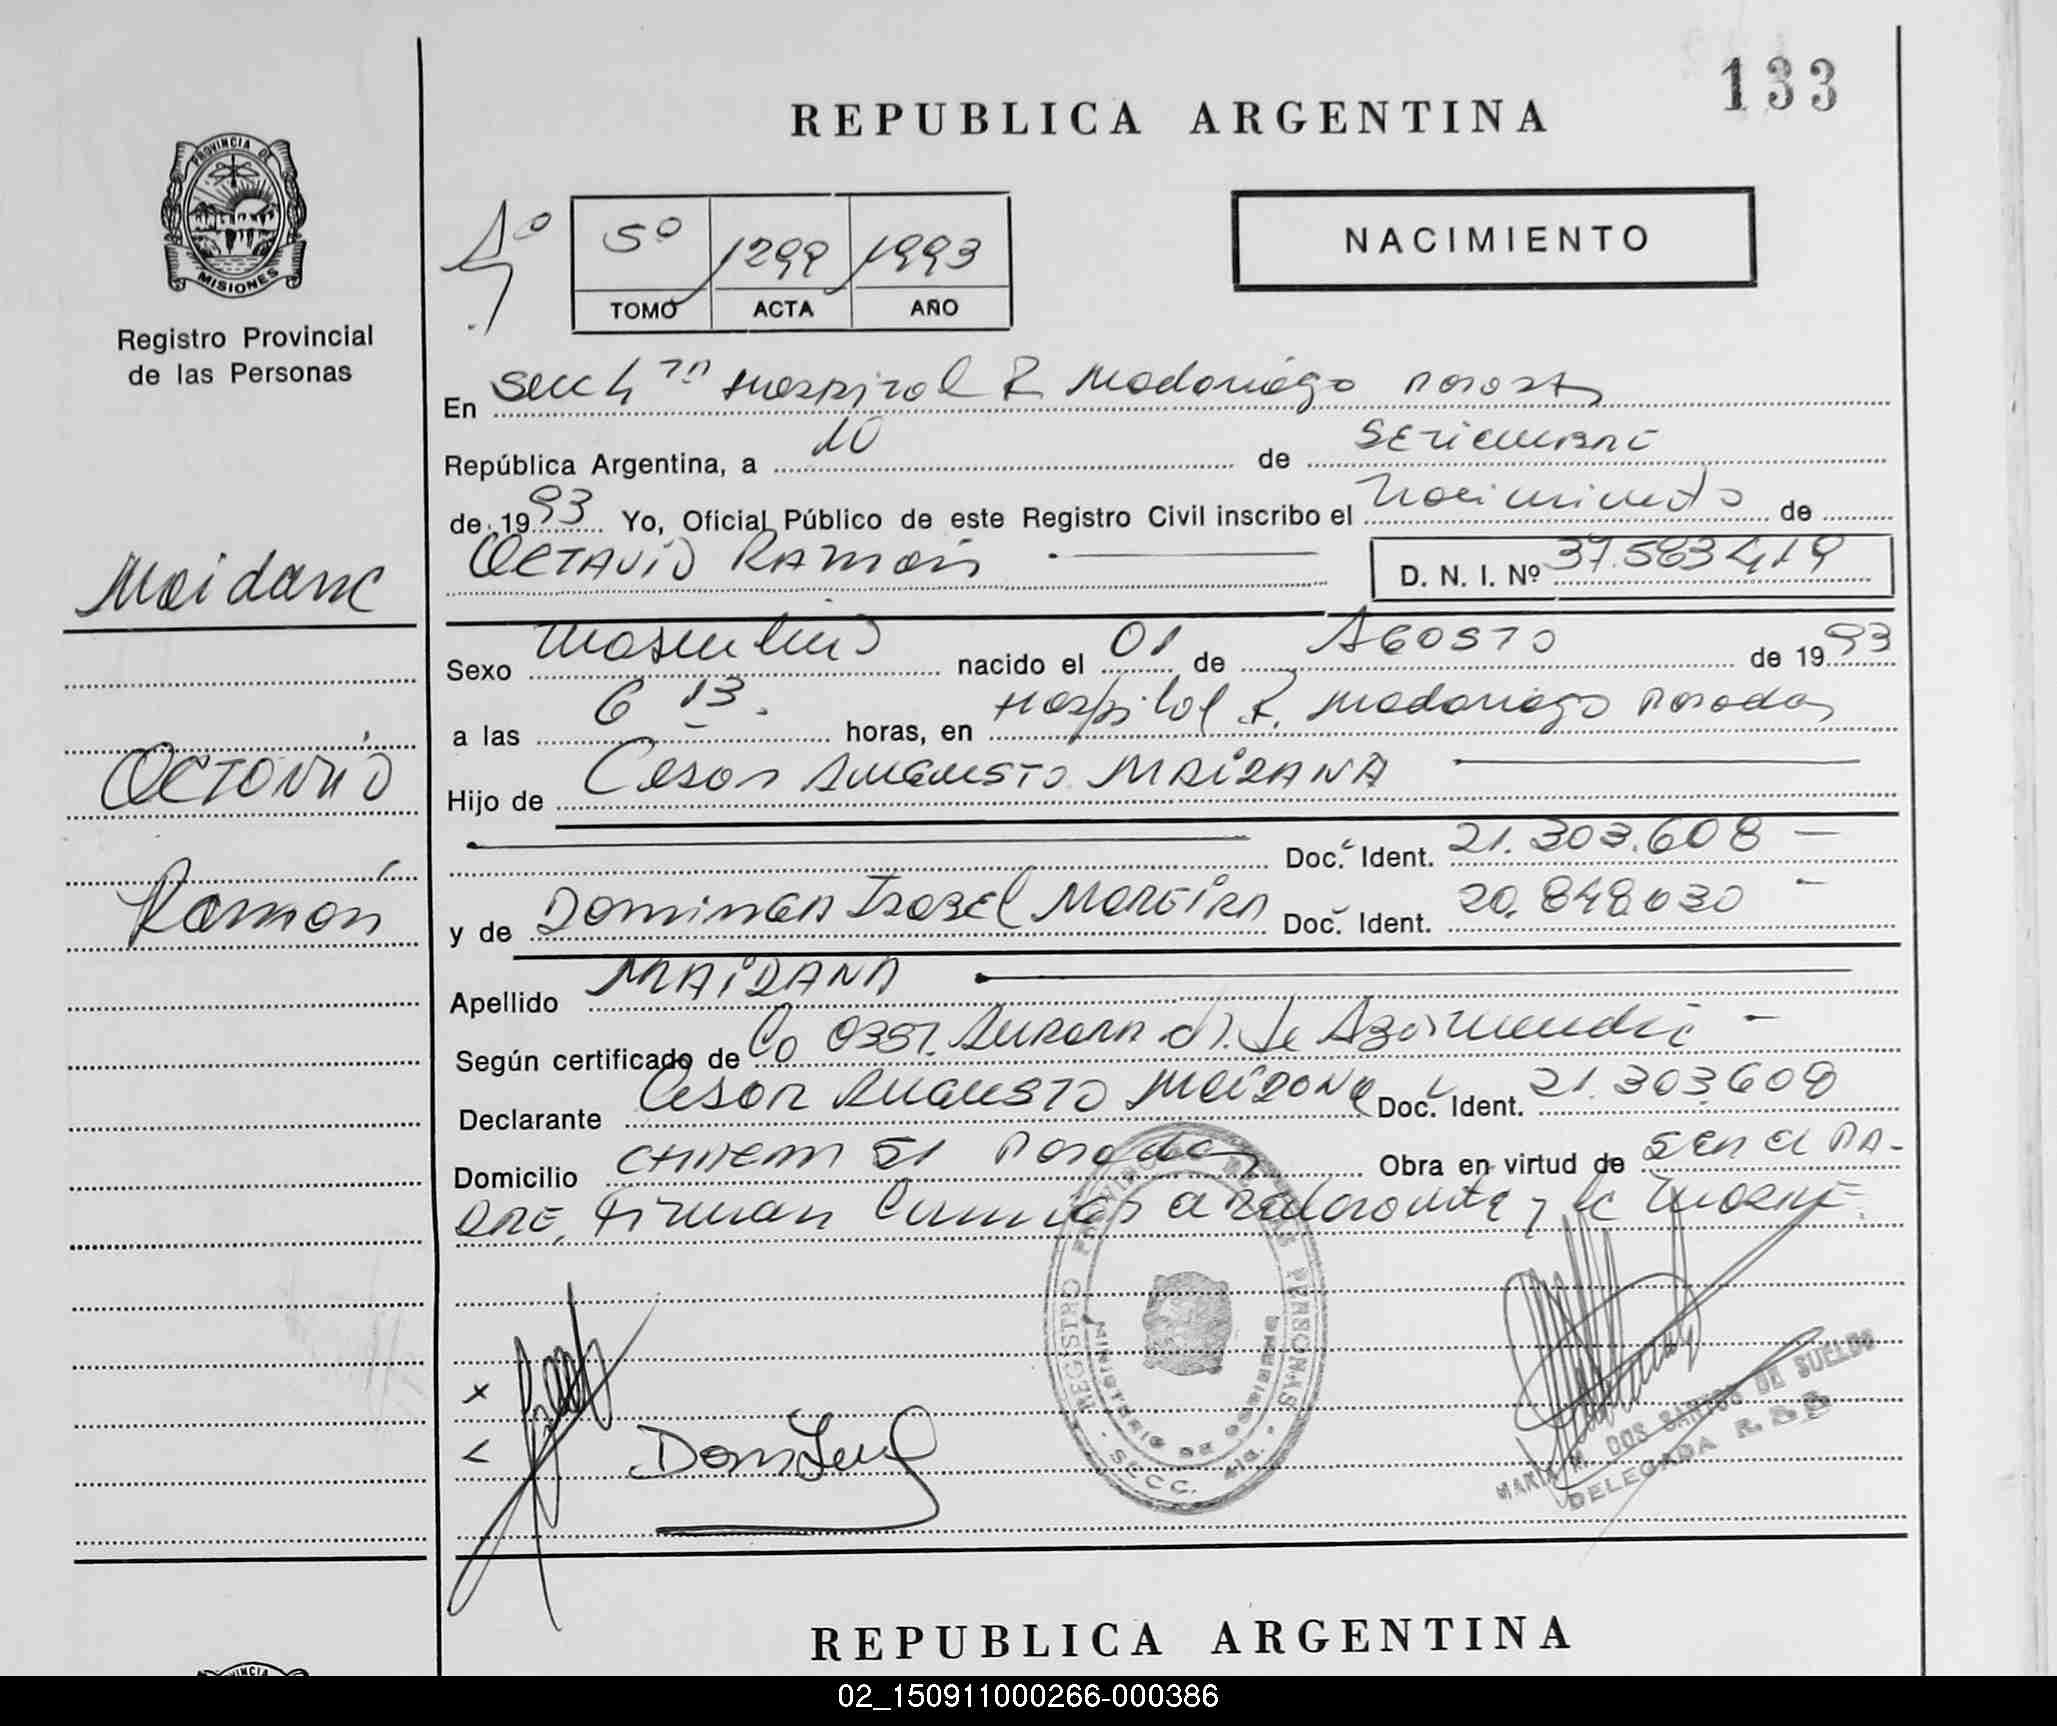 133
REPUBLICA ARGENTINA
PROVINCIA DE
MISIONES
Registro Provincial
de las Personas
NACIMIENTO
5º 1299 1993
TOMO ACTA AÑO
En Secc 4ta Hospital R Madariaga Posadas
República Argentina, a 10 de SETIEMBRE
de 1993 Yo, Oficial Público de este Registro Civil inscribo el Nacimiento de
OCTAVIO RAMON D. N. I. Nº 37.583.419
Maidana
Sexo Masculino nacido el 01 de AGOSTO de 1993
a las 6 13. horas, en Hospital R. Madariaga Posadas
Octavio
Hijo de Cesar Augusto MAIDANA
Doc. Ident. 21.303.608 —
Ramón
y de Dominga Isabel MOREIRA Doc. Ident. 20.848.030 -
Apellido MAIDANA
Según certificado de Co 0357. Aurora de Azarmendia -
Declarante Cesar Augusto Maidana Doc. Ident. 21.303.608
Domicilio 51 Posadas Obra en virtud de SER el PA-
DRE, firman el declarante y la MADRE.
REGISTRO PROVINCIAL DE LAS PERSONAS
MINISTERIO DE GOBIERNO
SECC. 4ta.
x
MARIA M. DOS SANTOS DE SUELDO
DELEGADA R.
REPUBLICA ARGENTINA
02_150911000266-000386